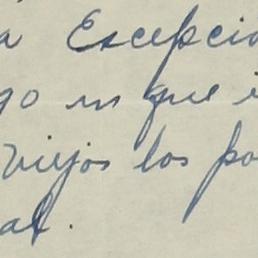 a Escepcio
go en que i
viejos los po
al.